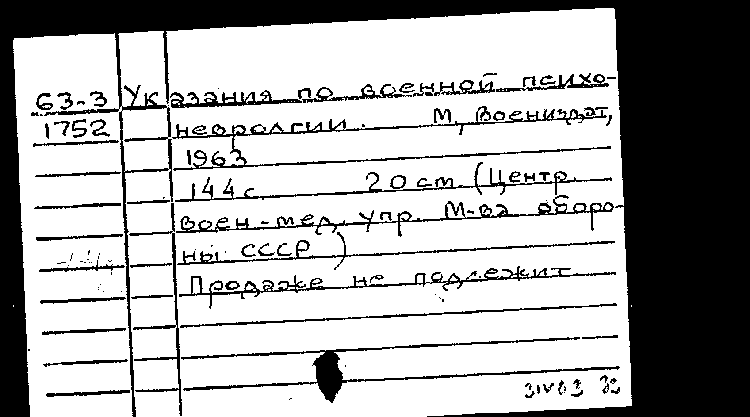 63-3 Указания по военной психо-
1752 невролгии. М, Воениздат,
1963
144 с 20 ст. (Центр.
воен-мед. упр. М-ва оборо-
ны СССР)
Продаже не подлежит